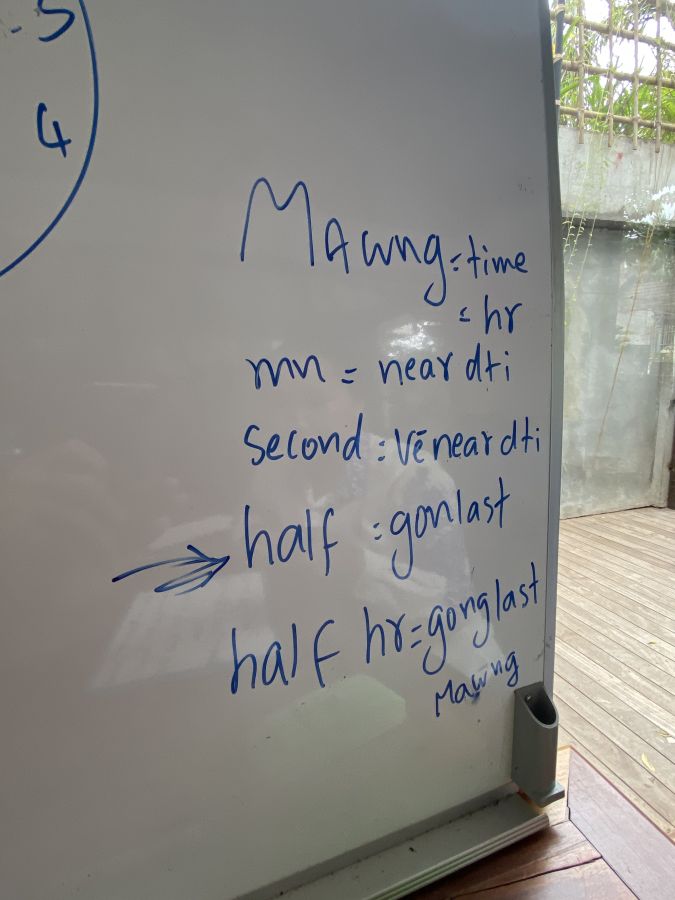 5
4
MAwng = time
= hr
mn = near dti
second : vēnear dti
half : gonlast
half hr = gonglast
Mawng